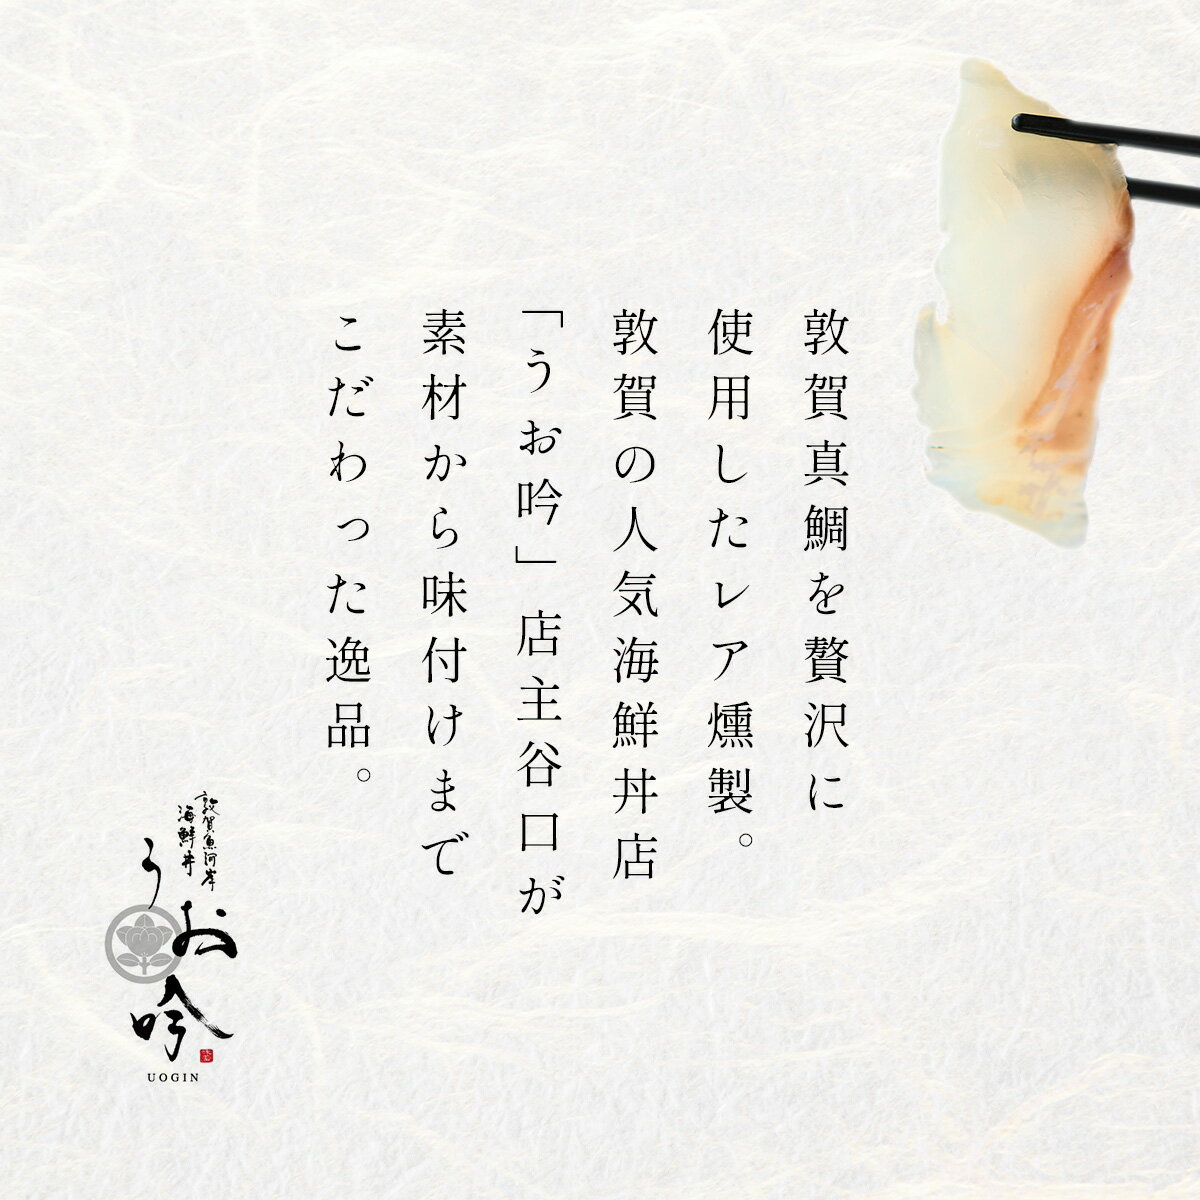 敦賀真鯛を贅沢に
使用したレア燻製。
敦賀の人気海鮮丼店
「うお吟」店主谷口が
素材から味付けまで
こだわった逸品。
敦賀魚河岸
海鮮丼
うお吟
UOGIN